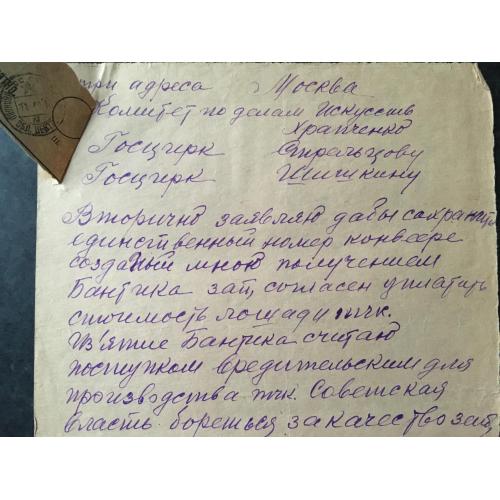 три адреса Москва
Комитет по делам Искусств
Храпченко
Госцирк Стрельцову
Госцирк Шишкину
Вторично заявляю дабы сохранить
единственный номер конвеере
созданый мною получением
Бантика зпт, согласен уплатить
стоимость лошади тчк.
Из'ятие Бантика считаю
поступком вредительским для
производства тчк. Советская
власть бореться за качество зпт,